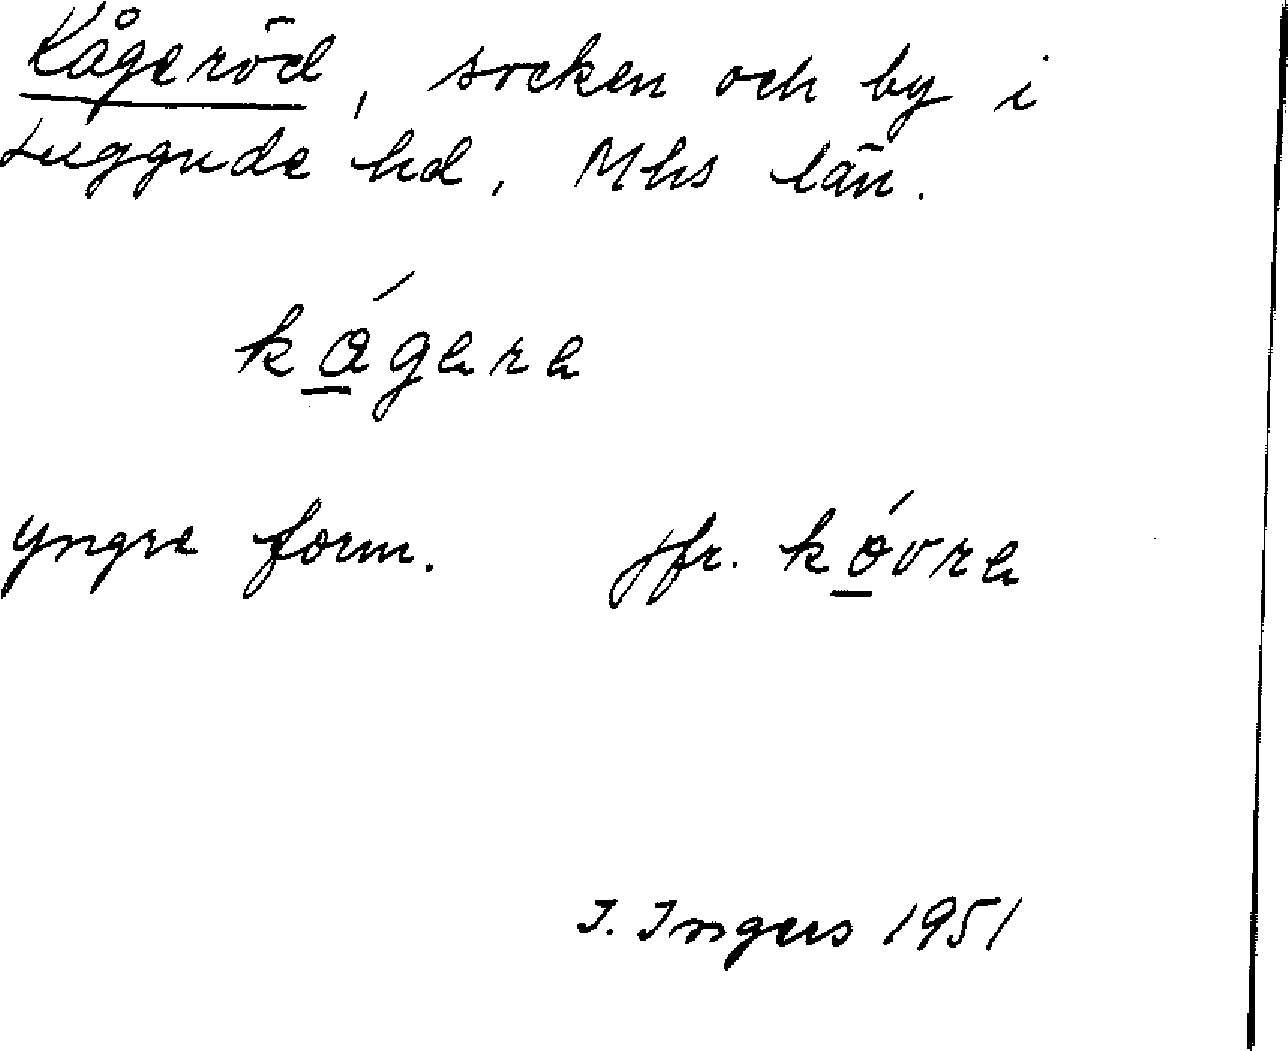 Kågeröd, socken och by i
Luggude hd, Mhs län.
kågere
yngre form. jfr. kóvre
I. Ingers 1951